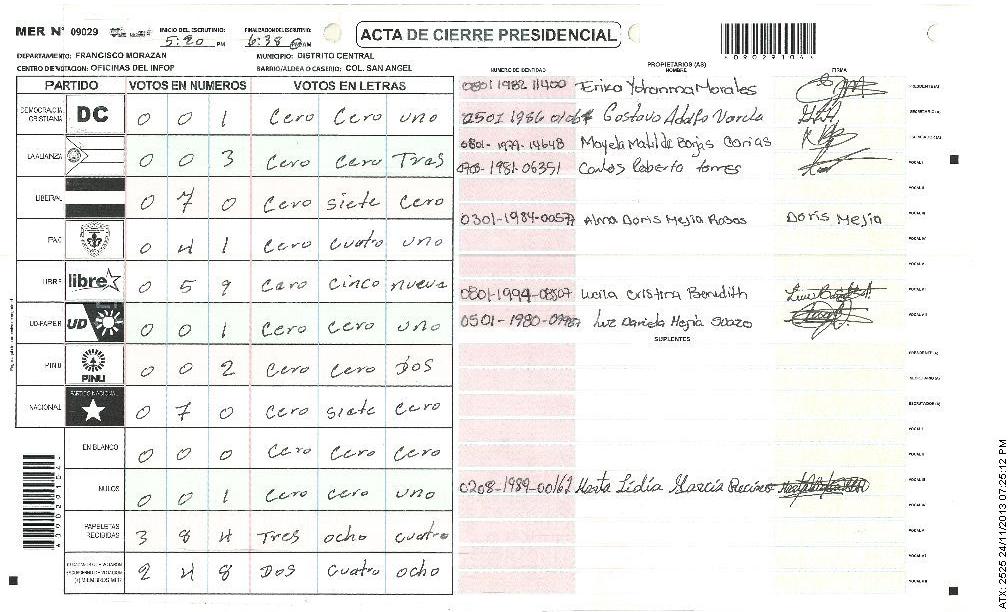 MER N° 09029
INICIO DEL ESCRUTINIO: 5:20 PM
FINALIZACION DEL ESCRUTINIO: 6:38 AM
ACTA DE CIERRE PRESIDENCIAL
DEPARTAMENTO: FRANCISCO MORAZAN
MUNICIPIO: DISTRITO CENTRAL
CENTRO DE VOTACION: OFICINAS DEL INFOP
BARRIO/ALDEA O CASERIO: COL. SAN ANGEL
PARTIDO VOTOS EN NUMEROS VOTOS EN LETRAS
DEMOCRACIA CRISTIANA DC 0 0 1 Cero Cero uno
LA ALIANZA 0 0 3 Cero Cero Tres
LIBERAL 0 7 0 Cero siete Cero
PAC 0 4 1 Cero Cuatro uno
LIBRE libre 0 5 9 Cero Cinco nueve
UD-FAPER UD 0 0 1 Cero Cero uno
PINU PINU 0 0 2 Cero Cero Dos
NACIONAL PARTIDO NACIONAL 0 7 0 Cero siete Cero
EN BLANCO 0 0 0 Cero Cero Cero
NULOS 0 0 1 Cero Cero uno
PAPELETAS RECIBIDAS 3 8 4 Tres ocho cuatro
2 4 8 Dos Cuatro ocho
PROPIETARIOS (AS)
NUMERO DE IDENTIDAD NOMBRE FIRMA
0801 1982 11400 Erika Yohanna Morales PRESIDENTE(A)
Gustavo Adolfo Varela SECRETARIO(A)
0801-1979-14648 Mayela Matilde Borjas Corias
1981-06351 Carlos Roberto torres VOCAL I
VOCAL II
0301-1984-00577 Alma Doris Mejia Rosas Doris Mejia VOCAL III
VOCAL IV
VOCAL V
0801-1994-08507 Cristina Benedith VOCAL VI
0501-1980- Luz Daniela Mejia Suazo VOCAL VII
SUPLENTES
PRESIDENTE(A)
SECRETARIO(A)
ESCRUTADOR(A)
VOCAL I
VOCAL II
0208-1989-00162 Lidia Garcia VOCAL III
VOCAL IV
VOCAL V
VOCAL VI
VOCAL VII
ATX: 2525 24/11/2013 07:25:12 PM